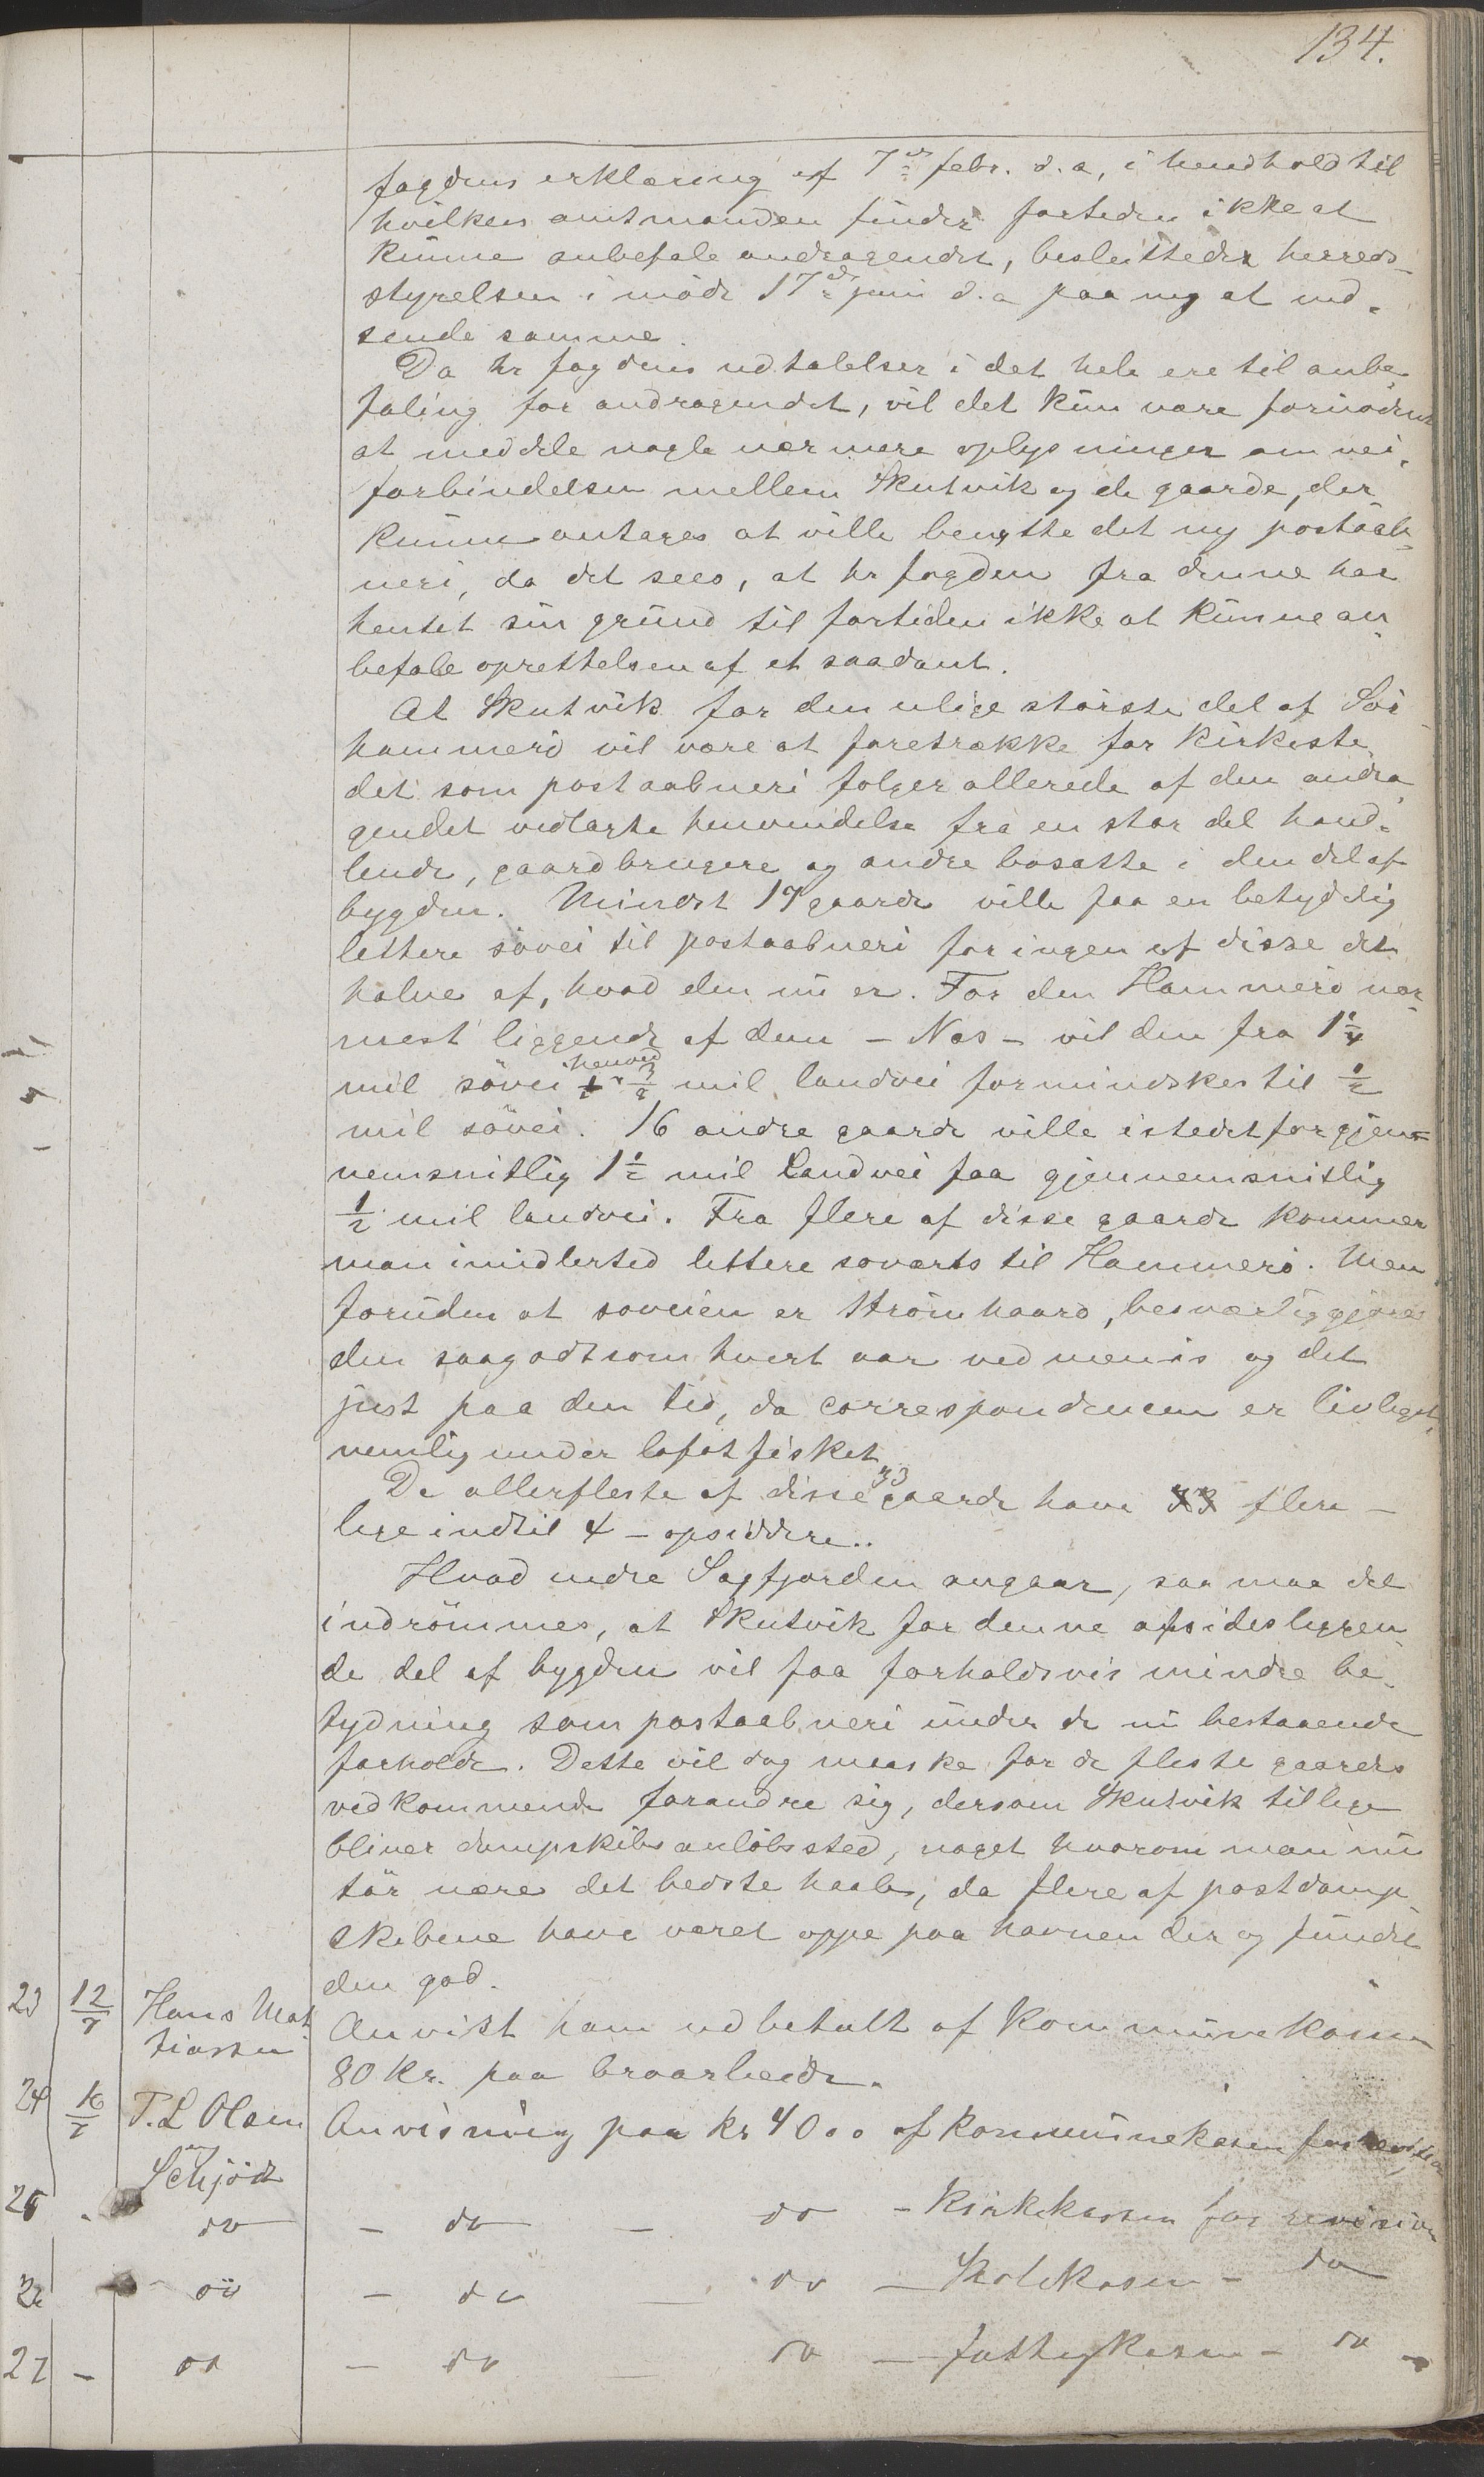 134.
fogdens erklæring af 7de febr. d. a, i henhold til
hvilken amtmanden finder fortiden ikke at
kunne anbefale andragendet, besluttede herreds-
styrelsen i møde 17de juni d. a paa ny at ind-
sende samme.
Da hr fogdens udtalelser i det hele ere til anbe-
faling for andragendet, vil det kun være fornødent
at meddele nogle nærmere oplysninger om vei-
forbindelsen mellem Skutvik og de gaarde, der
kunne antages at ville benytte det ny postaab-
neri, da det sees, at hr fogden fra denne har
hentet sin grund til fortiden ikke at kunne an-
befale oprettelsen af et saadant.
At Skutvik for den ulige største del af Sør
hammerø vil være at foretrække for kirkeste-
det som postaabneri følger allerede af den andra-
gendet vedlagte henvendelse fra en stor del hand-
lende, gaardbrugere og andre bosatte i den del af
bygden. Mindst 17 gaarde ville faa en betydelig
lettere søvei til postaabneri for ingen af disse det
halve af, hvad den nu er. For den Hammerø nær-
mest liggende af dem - Nes - vil den fra 1 1/4
mil søvei henved 3/8 mil landvei formindskes til 1/2
mil søvei. 16 andre gaarde ville istedetfor gjen-
nemsnitlig 1 1/2 mil Landvei faa gjennemsnitlig
1/2 mil landvei. Fra flere af disse gaarde kommer
man imidlertid lettere søværts til Hammerø. Men
foruden at søveien er strømhaard, besværliggjøres
den saagodtsom hvert aar ved menis og det
just paa den tid, da correspondencen er livligst,
nemlig under lofotfisket
De allerfleste af disse 33 gaarde have flere -
lige indtil 4 - opsiddere..
Hvad indre Sagfjorden angaar, saa maa det
indrømmes, at Skutvik for denne afsidesliggen-
de del af bygden vil faa forholdsvis mindre be-
tydning som postaabneri under de nu bestaaende
forholde. Dette vil dog maaske for de fleste gaardes
vedkommende forandre sig, dersom Skutvik tillige
bliver dampskibsanløbssted, noget hvorom man nu
tør nære det bedste haab, da flere af postdamp-
skibene have været oppe paa havnen der og fundet
den god.
23 12/7 Hans Mat-
tiassen Anvist ham udbetalt af Kommunekassen
80 kr. paa broarbeide.
24 16/7 T. L Olsen
Schjødt Anvisning paa kr 40 00 af kommunekassen for revision
25 - do - do - do - Kirkekassen for revision
26 - do - do - do - Skolekassen - do
27 - do - do - do - fattigkassen - do